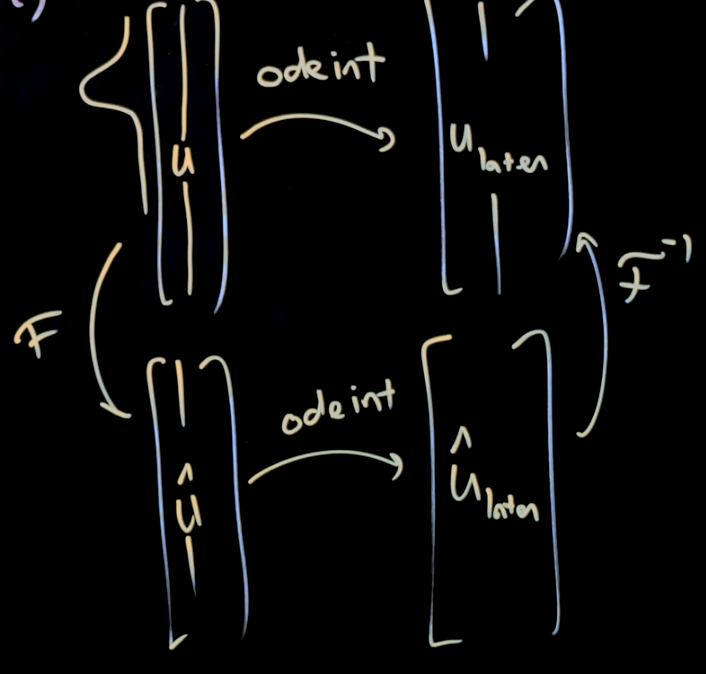 odeint
u
u later
F
F⁻¹
odeint
û
û later